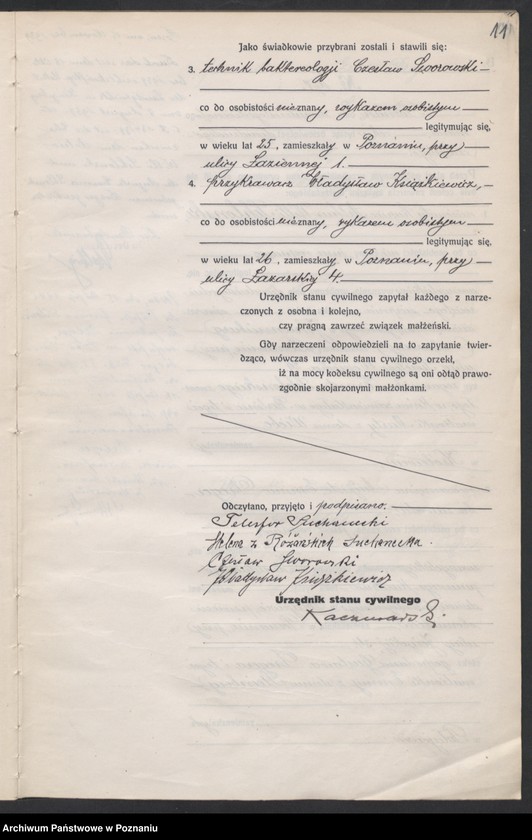 11
Jako świadkowie przybrani zostali i stawili się:
3. technik baktereologji Czesław Sworowski
co do osobistości nieznany, wykazem osobistym
legitymując się,
w wieku lat 25, zamieszkały w Poznaniu, przy
ulicy Łaziennej 1.
4. przykrawacz Władysław Książkiewicz,
co do osobistości nieznany, wykazem osobistym
legitymując się.
w wieku lat 26, zamieszkały w Poznaniu, przy
ulicy Łazarskiej 4.
Urzędnik stanu cywilnego zapytał każdego z narze-
czonych z osobna i kolejno,
czy pragną zawrzeć związek małżeński.
Gdy narzeczeni odpowiedzieli na to zapytanie twier-
dząco, wówczas urzędnik stanu cywilnego orzekł,
iż na mocy kodeksu cywilnego są oni odtąd prawo-
zgodnie skojarzonymi małżonkami.
Odczytano, przyjęto i podpisano.
Telesfor Suchanecki
Helena z Różańskich Suchanecka.
Czesław Sworowski
Władysław Książkiewicz
Urzędnik stanu cywilnego
Archiwum Państwowe w Poznaniu